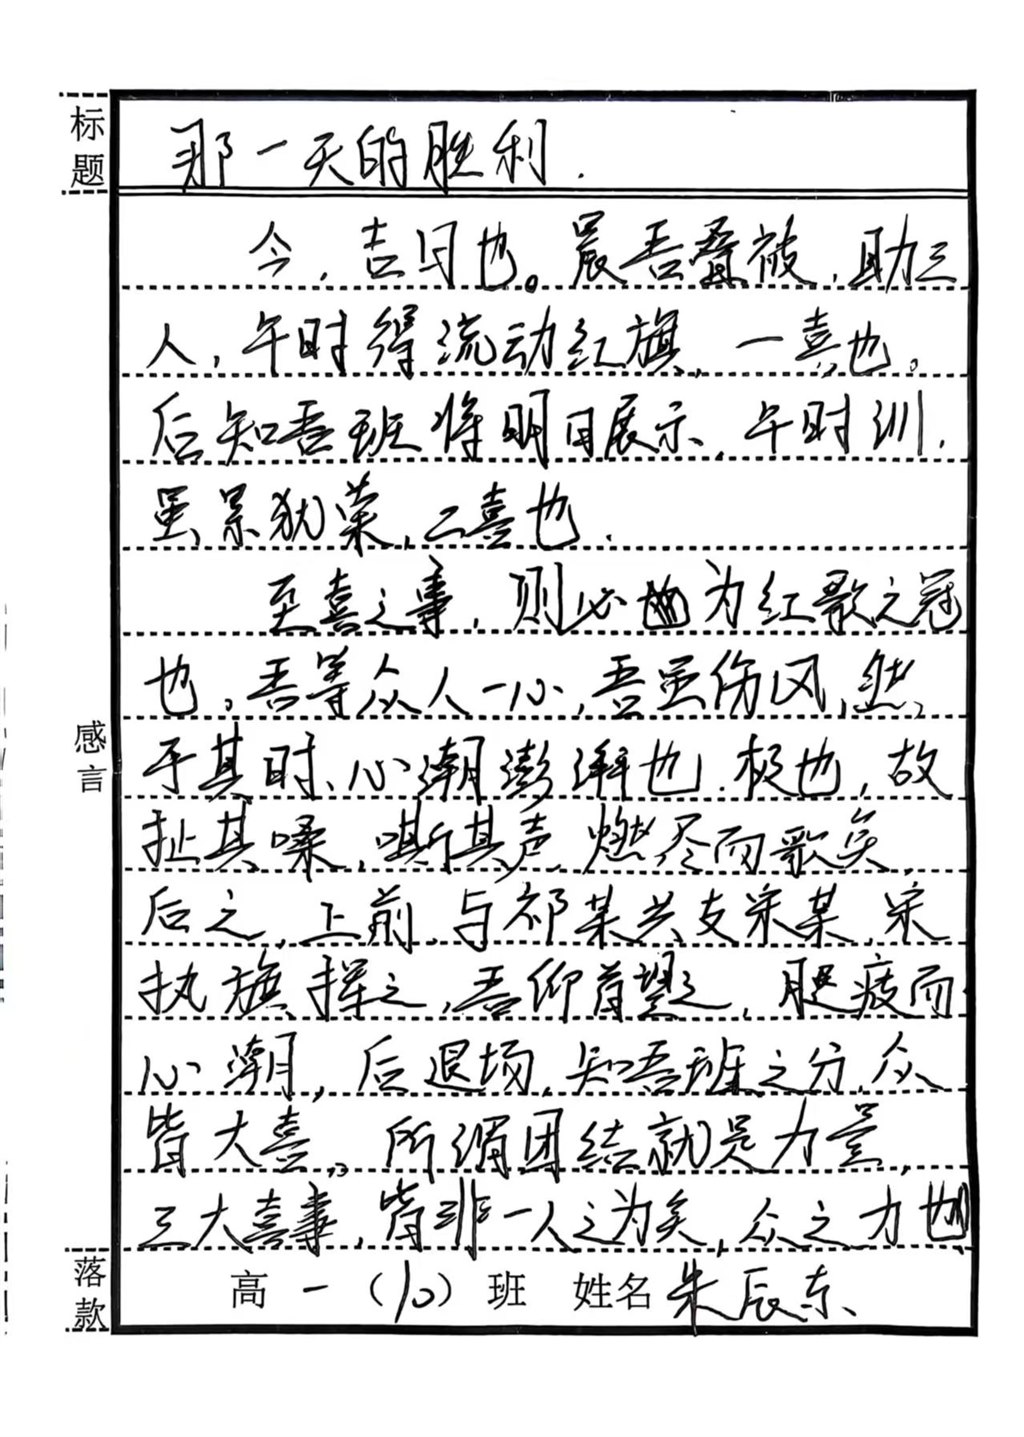 标题
那一天的胜利.
今，吉日也。晨吾叠被，助三
人，午时得流动红旗，一喜也。
后知吾班将明日展示，午时训，
虽累犹荣，二喜也.
至喜之事，则必为红歌之冠
也。吾等众人一心，吾虽伤风，然
于其时、心潮澎湃也.极也，故
扯其嗓，嘶其声，燃尽而歌矣，
后之，上前，与祁某共支宋某，宋
执旗挥之，吾仰首望之，腿疲而
心潮，后退场，知吾班之分，众
皆大喜。所谓团结就是力量，
三大喜事，皆非一人之为矣，众之力也
感言
落款
高一（10）班 姓名 朱辰东